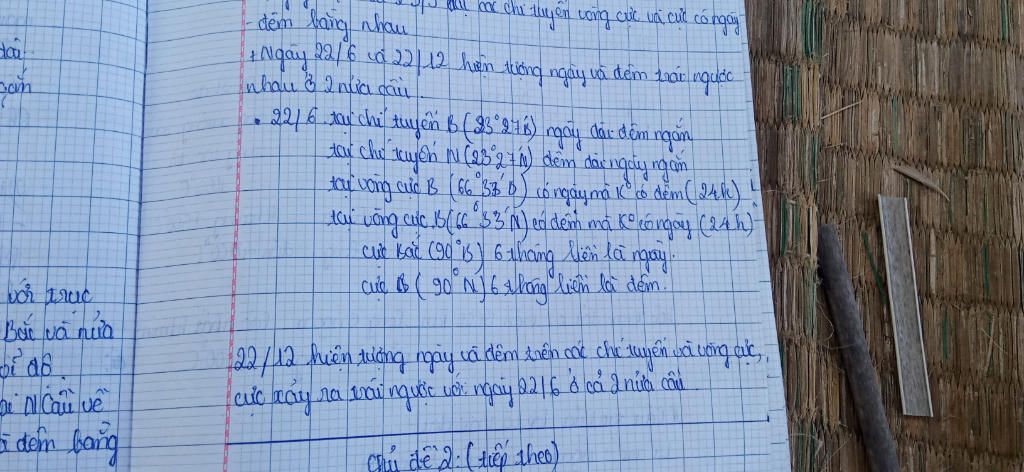 các chí tuyến vòng cực và cực có ngày
đêm bằng nhau
+ Ngày 22/6 và 22/12 hiện tượng ngày và đêm trái ngược
nhau ở 2 nửa cầu.
• 22/6 tại chí tuyến B (23°27'B) ngày dài đêm ngắn
tại chí tuyến N (23°27'N) đêm dài ngày ngắn
tại vòng cực B (66°33'B) có ngày mà K° có đêm (24h)
tại vòng cực B (66°33'N) có đêm mà K° có ngày (24h)
cực Bắc (90°B) 6 tháng liền là ngày.
cực (90°N) 6 tháng liền là đêm.
22/12 hiện tượng ngày và đêm trên các chí tuyến và vòng cực,
cực xảy ra trái ngược với ngày 22/6 ở cả 2 nửa cầu
Chủ đề 2: (tiếp theo)
với trục
Bắc và nửa
N Cầu về
đêm bằng